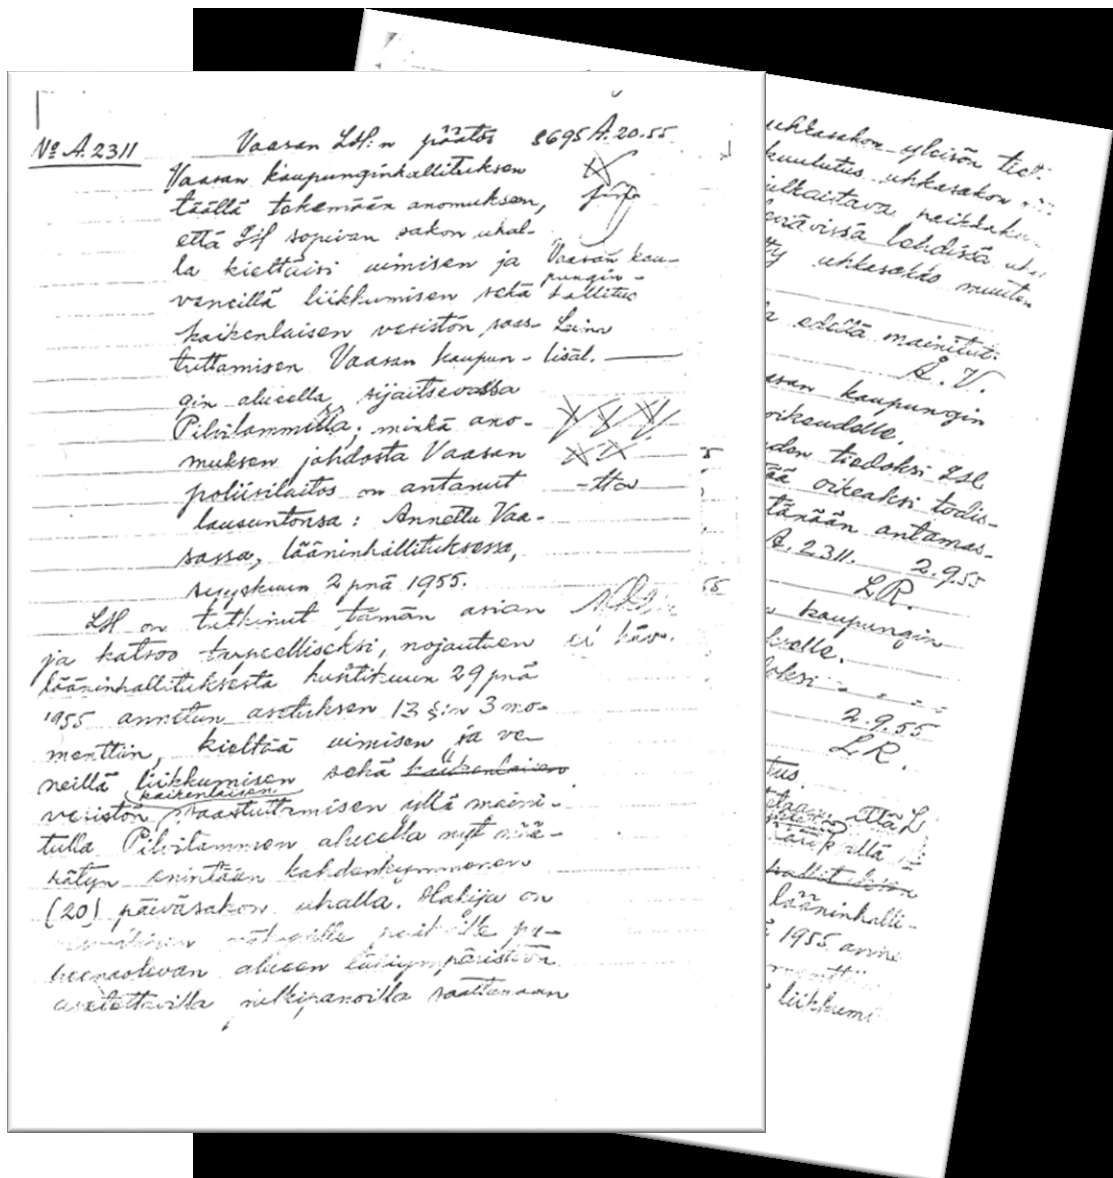 No A.2311
Vaasan LH:n päätös 8695 A.20.55
Vaasan kaupunginhallituksen
täällä tekemään anomuksen,
että LH sopivan sakon uhal-
la kieltäisi uimisen ja
veneillä liikkumisen sekä
kaikenlaisen vesistön saas-
tuttamisen Vaasan kaupun-
gin alueella sijaitsevassa
Pilvilammilla, minkä ano-
muksen johdosta Vaasan
poliisilaitos on antanut
lausuntonsa: Annettu Vaa-
sassa, lääninhallituksessa,
syyskuun 2 pnä 1955.
Vaasan kau-
pungin-
hallitus
Laina
lisäl.
-tta
LH on tutkinut tämän asian
ja katsoo tarpeelliseksi, nojautuen
lääninhallituksesta huhtikuun 29 pnä
1955 annetun asetuksen 13 §:n 3 mo-
menttiin, kieltää uimisen ja ve-
neillä liikkumisen sekä kaikenlaisen
kaikenlaisen
vesistön saastuttamisen yllä maini-
tulla Pilvilammen alueella nyt mää-
rätyn enintään kahdenkymmenen
(20) päiväsakon uhalla. Hakija on
näkyville paikoille pu-
heenaolevan alueen lähiympäristöön
asetettavilla julkipanoilla saattamaan
uhkasakon yleisön tiet.
kuulutus uhkasakon
julkaistava paikkaku
leviävissä lehdissä
uhkasakko muuten
edellä mainitut.
A.V.
kaupungin
oikeudelle.
tiedoksi LH
oikeaksi todis-
tänään antamas-
A.2311. 2.9.55
LR.
kaupungin-
2.9.55
LR.
että L
yllä
lääninhalli-
1955 anne
liikkumi